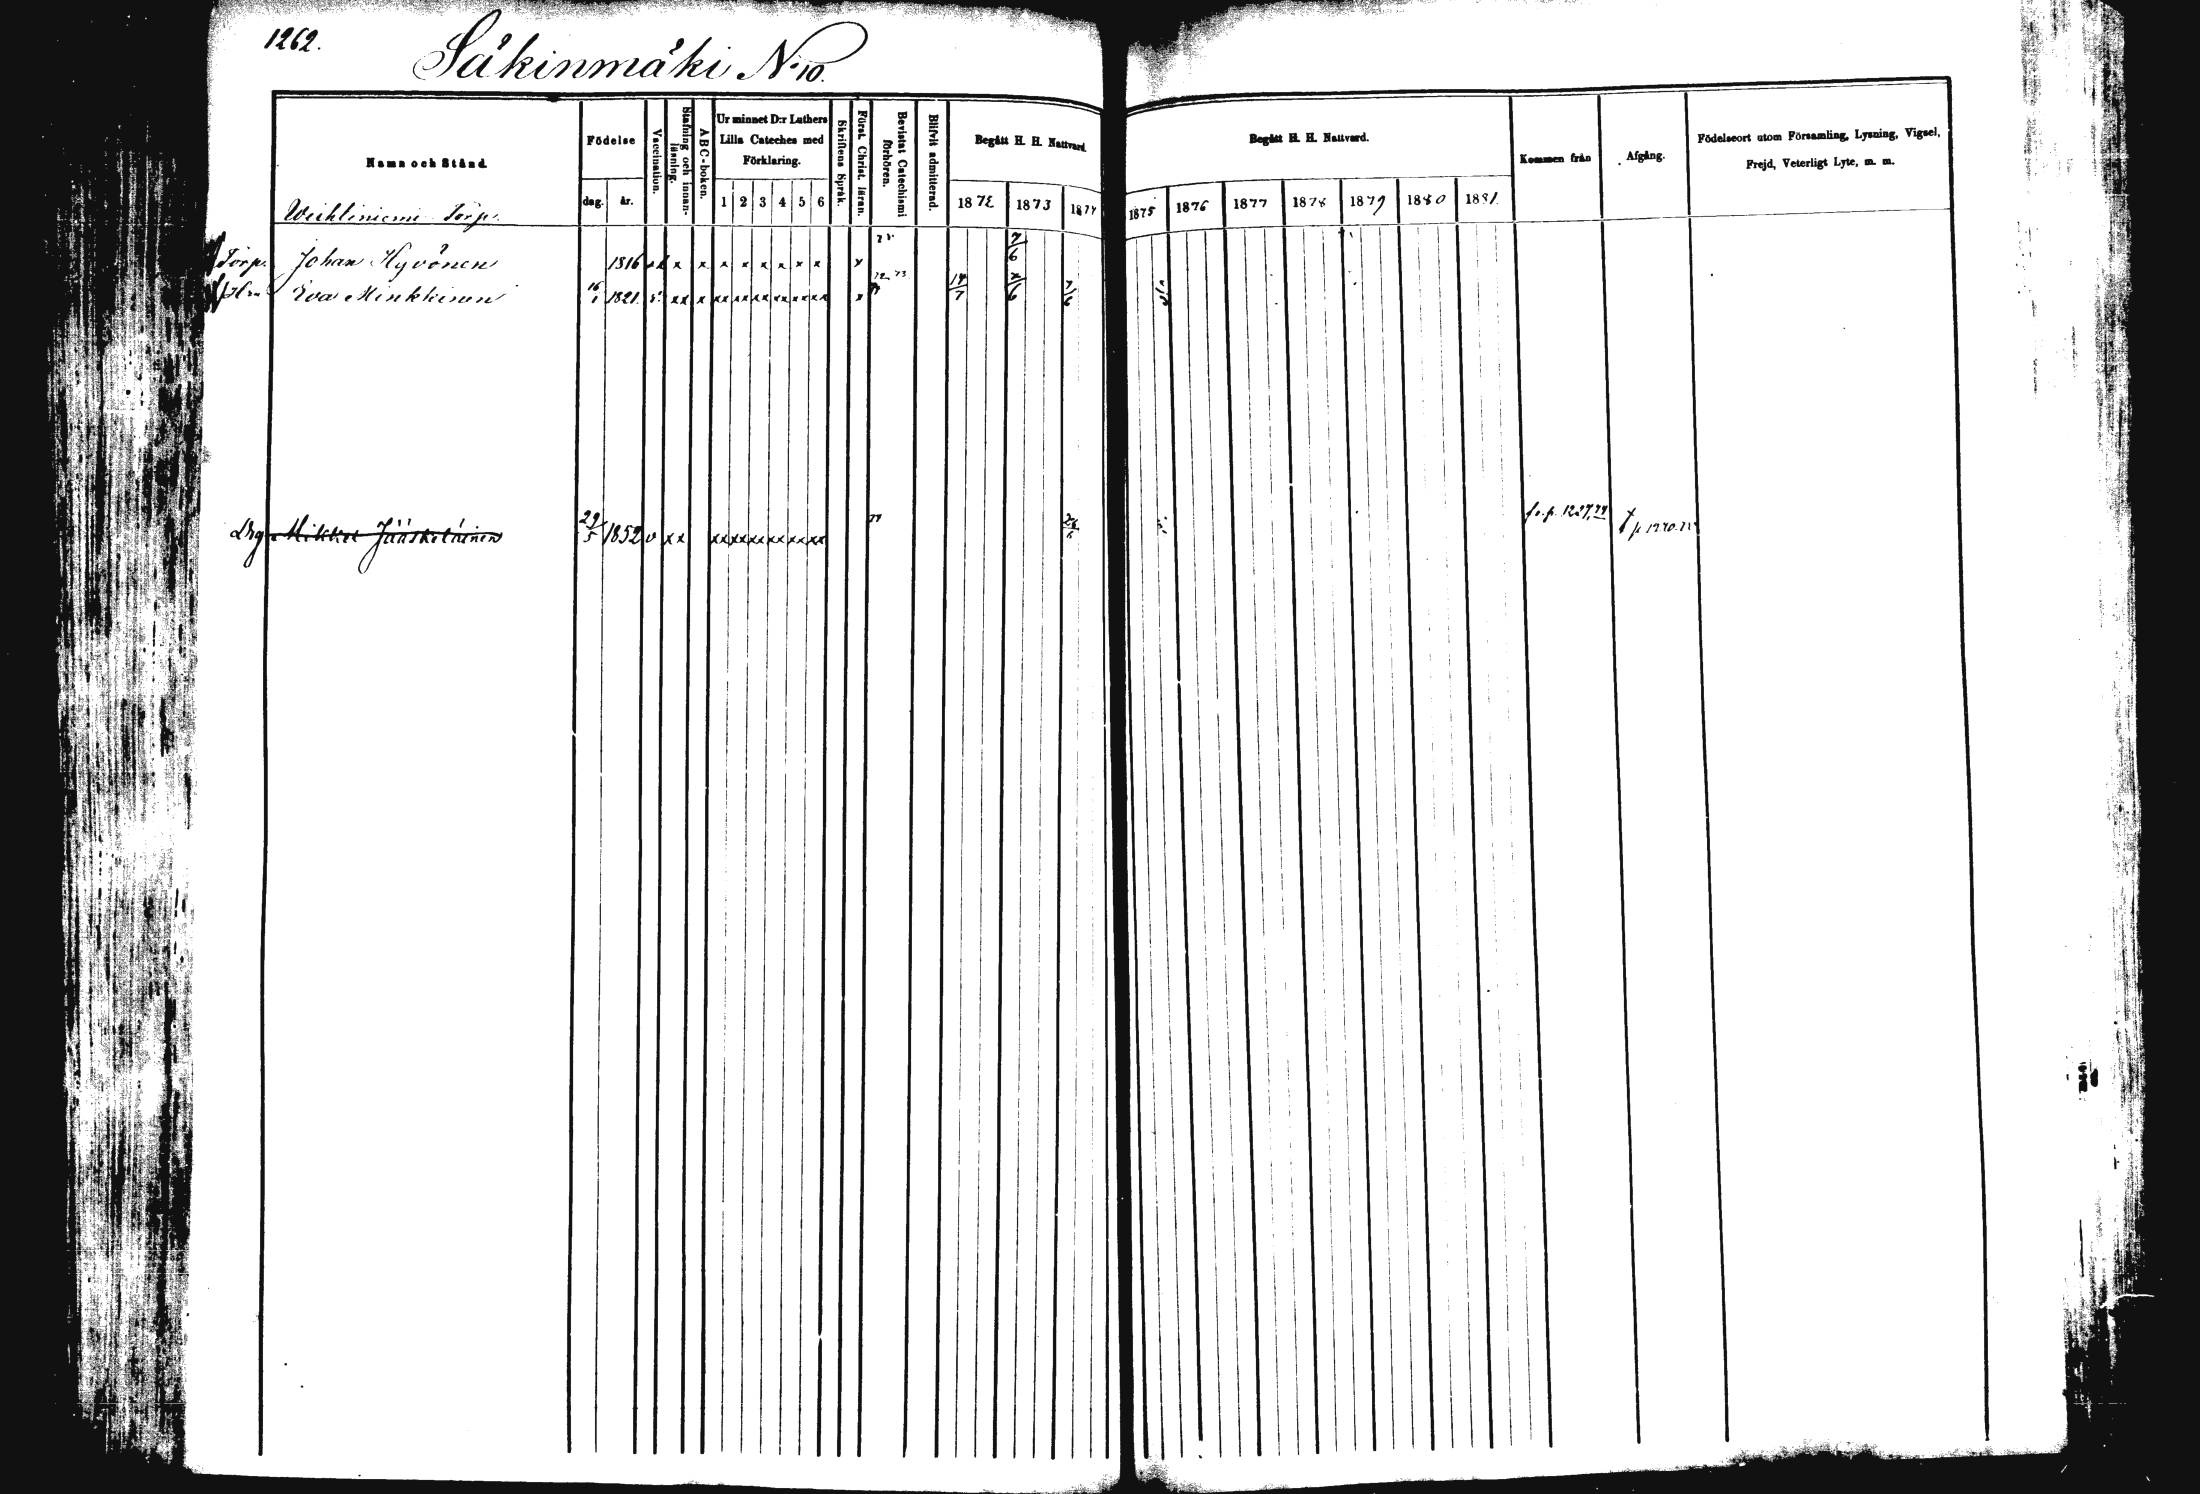 1262.
Säkinmäki No 10.
Namn och Stånd.
Födelse
dag. år.
Vaccination.
Stafning och innan-läsning.
ABC-boken.
Ur minnet D:r Luthers Lilla Cateches med Förklaring.
1 2 3 4 5 6
Skriftens Språk.
Först. Christ. läran.
Bevistat Catechismi förhören.
Blifvit admitterad.
Begått H. H. Nattvard.
1872 1873 1874
Begått H. H. Nattvard.
1875 1876 1877 1878 1879 1880 1881.
Kommen från
Afgång.
Födelseort utom Församling, Lysning, Vigsel, Frejd, Veterligt Lyte, m. m.
Torp.
Torp. Johan Hyvönen 1816 x x x x x x x x x 7/6
Eva Minkkinen 1821 xx x xx xx xx xx xx xx x 72 73 14/7 x/6 7/6
Drg Mikkel Jääskeläinen 29/5 1852 v xx xx xx xx xx xx xx 74 f. p. 1227, 74